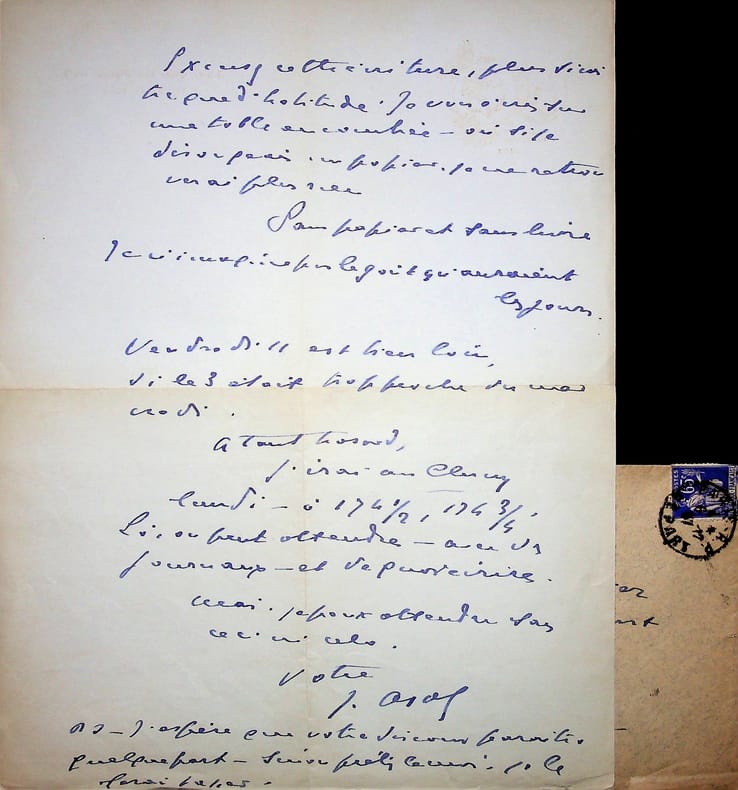 Excusez cette écriture, plus sinis
tre que d'habitude. Je vous écris sur
une table encombrée – où si je
dérangeais un papier, je ne retrou
verai plus rien
Sans papier et sans livre
Je n'imagine pas le goût qu'auraient
les jours.
Vendredi 11 est bien loin,
si le 3 était trop proche du mer
credi.
A tout hasard,
J'irai au Cluny
lundi – à 17h 1/2, 17h 3/4.
Là, on peut attendre – avec des
journaux – et de quoi écrire.
Mais je peux attendre sans
ceci ni cela.
Votre
J.
PS – J'espère que votre discours paraîtra
quelque part – sinon prêtez le moi. je le
ferai taper.
65
POSTES
PARIS